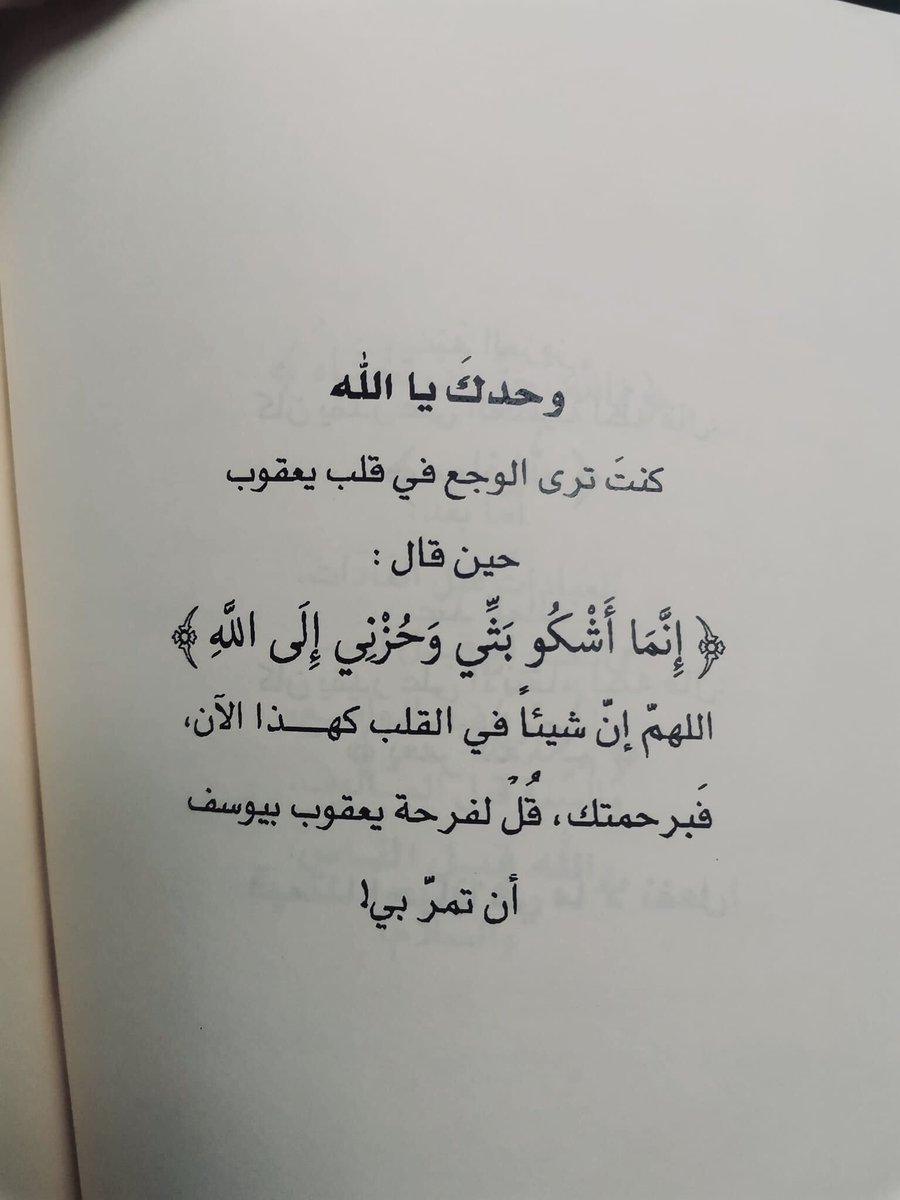 وحدكَ يا الله
كنتَ ترى الوجع في قلب يعقوب
حين قال :
﴿ إِنَّمَا أَشْكُو بَثِّي وَحُزْنِي إِلَى اللَّهِ ﴾
اللهمّ إنّ شيئاً في القلب كهـــذا الآن،
فَبرحمتك، قُلْ لفرحة يعقوب بيوسف
أن تمرّ بي!